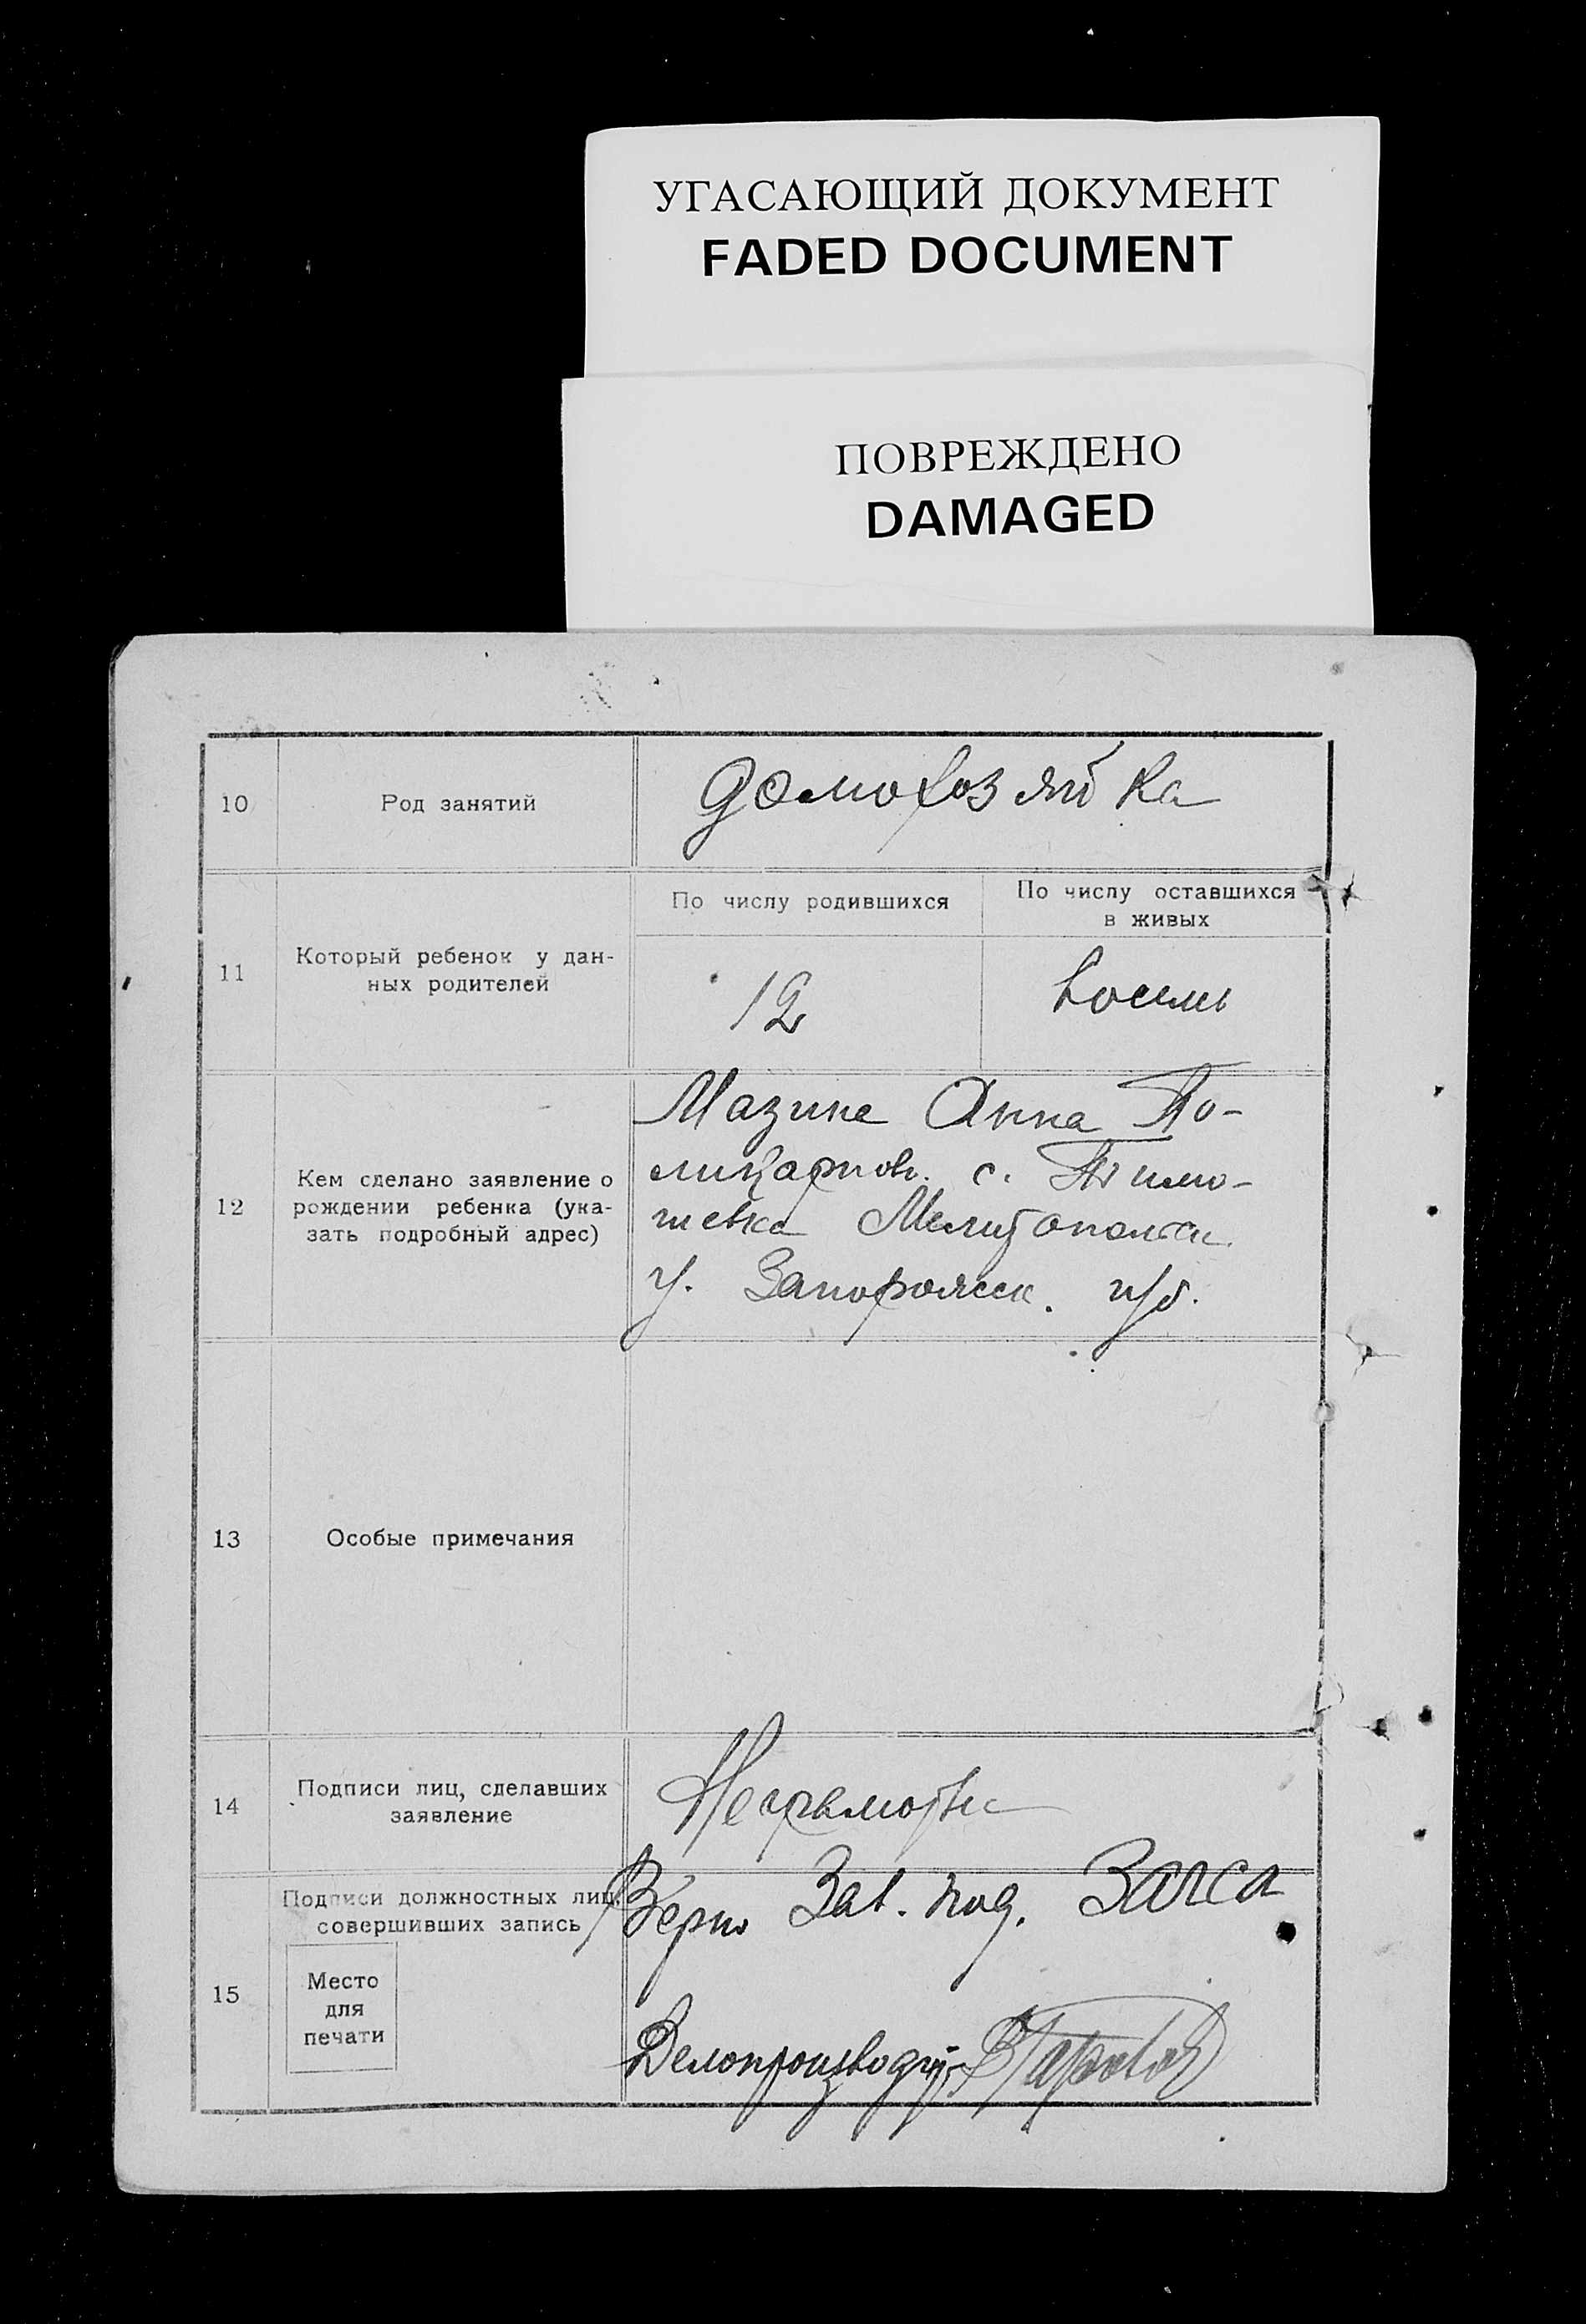 УГАСАЮЩИЙ ДОКУМЕНТ
FADED DOCUMENT
ПОВРЕЖДЕНО
DAMAGED
10
Род занятий
домохозяйка
11
Который ребенок у дан-
ных родителей
По числу родившихся
12
По числу оставшихся
в живых
восемь
12
Кем сделано заявление о
рождении ребенка (ука-
зать подробный адрес)
Анна По-
ликарпов. с. Тимо-
шевка Мелитопольск.
у. Запорожск. губ.
13
Особые примечания
14
Подписи лиц, сделавших
заявление
Неграмотна
15
Подписи должностных лиц,
совершивших запись
Место
для
печати
Верно Зав. под. Загса
Делопроизводит.